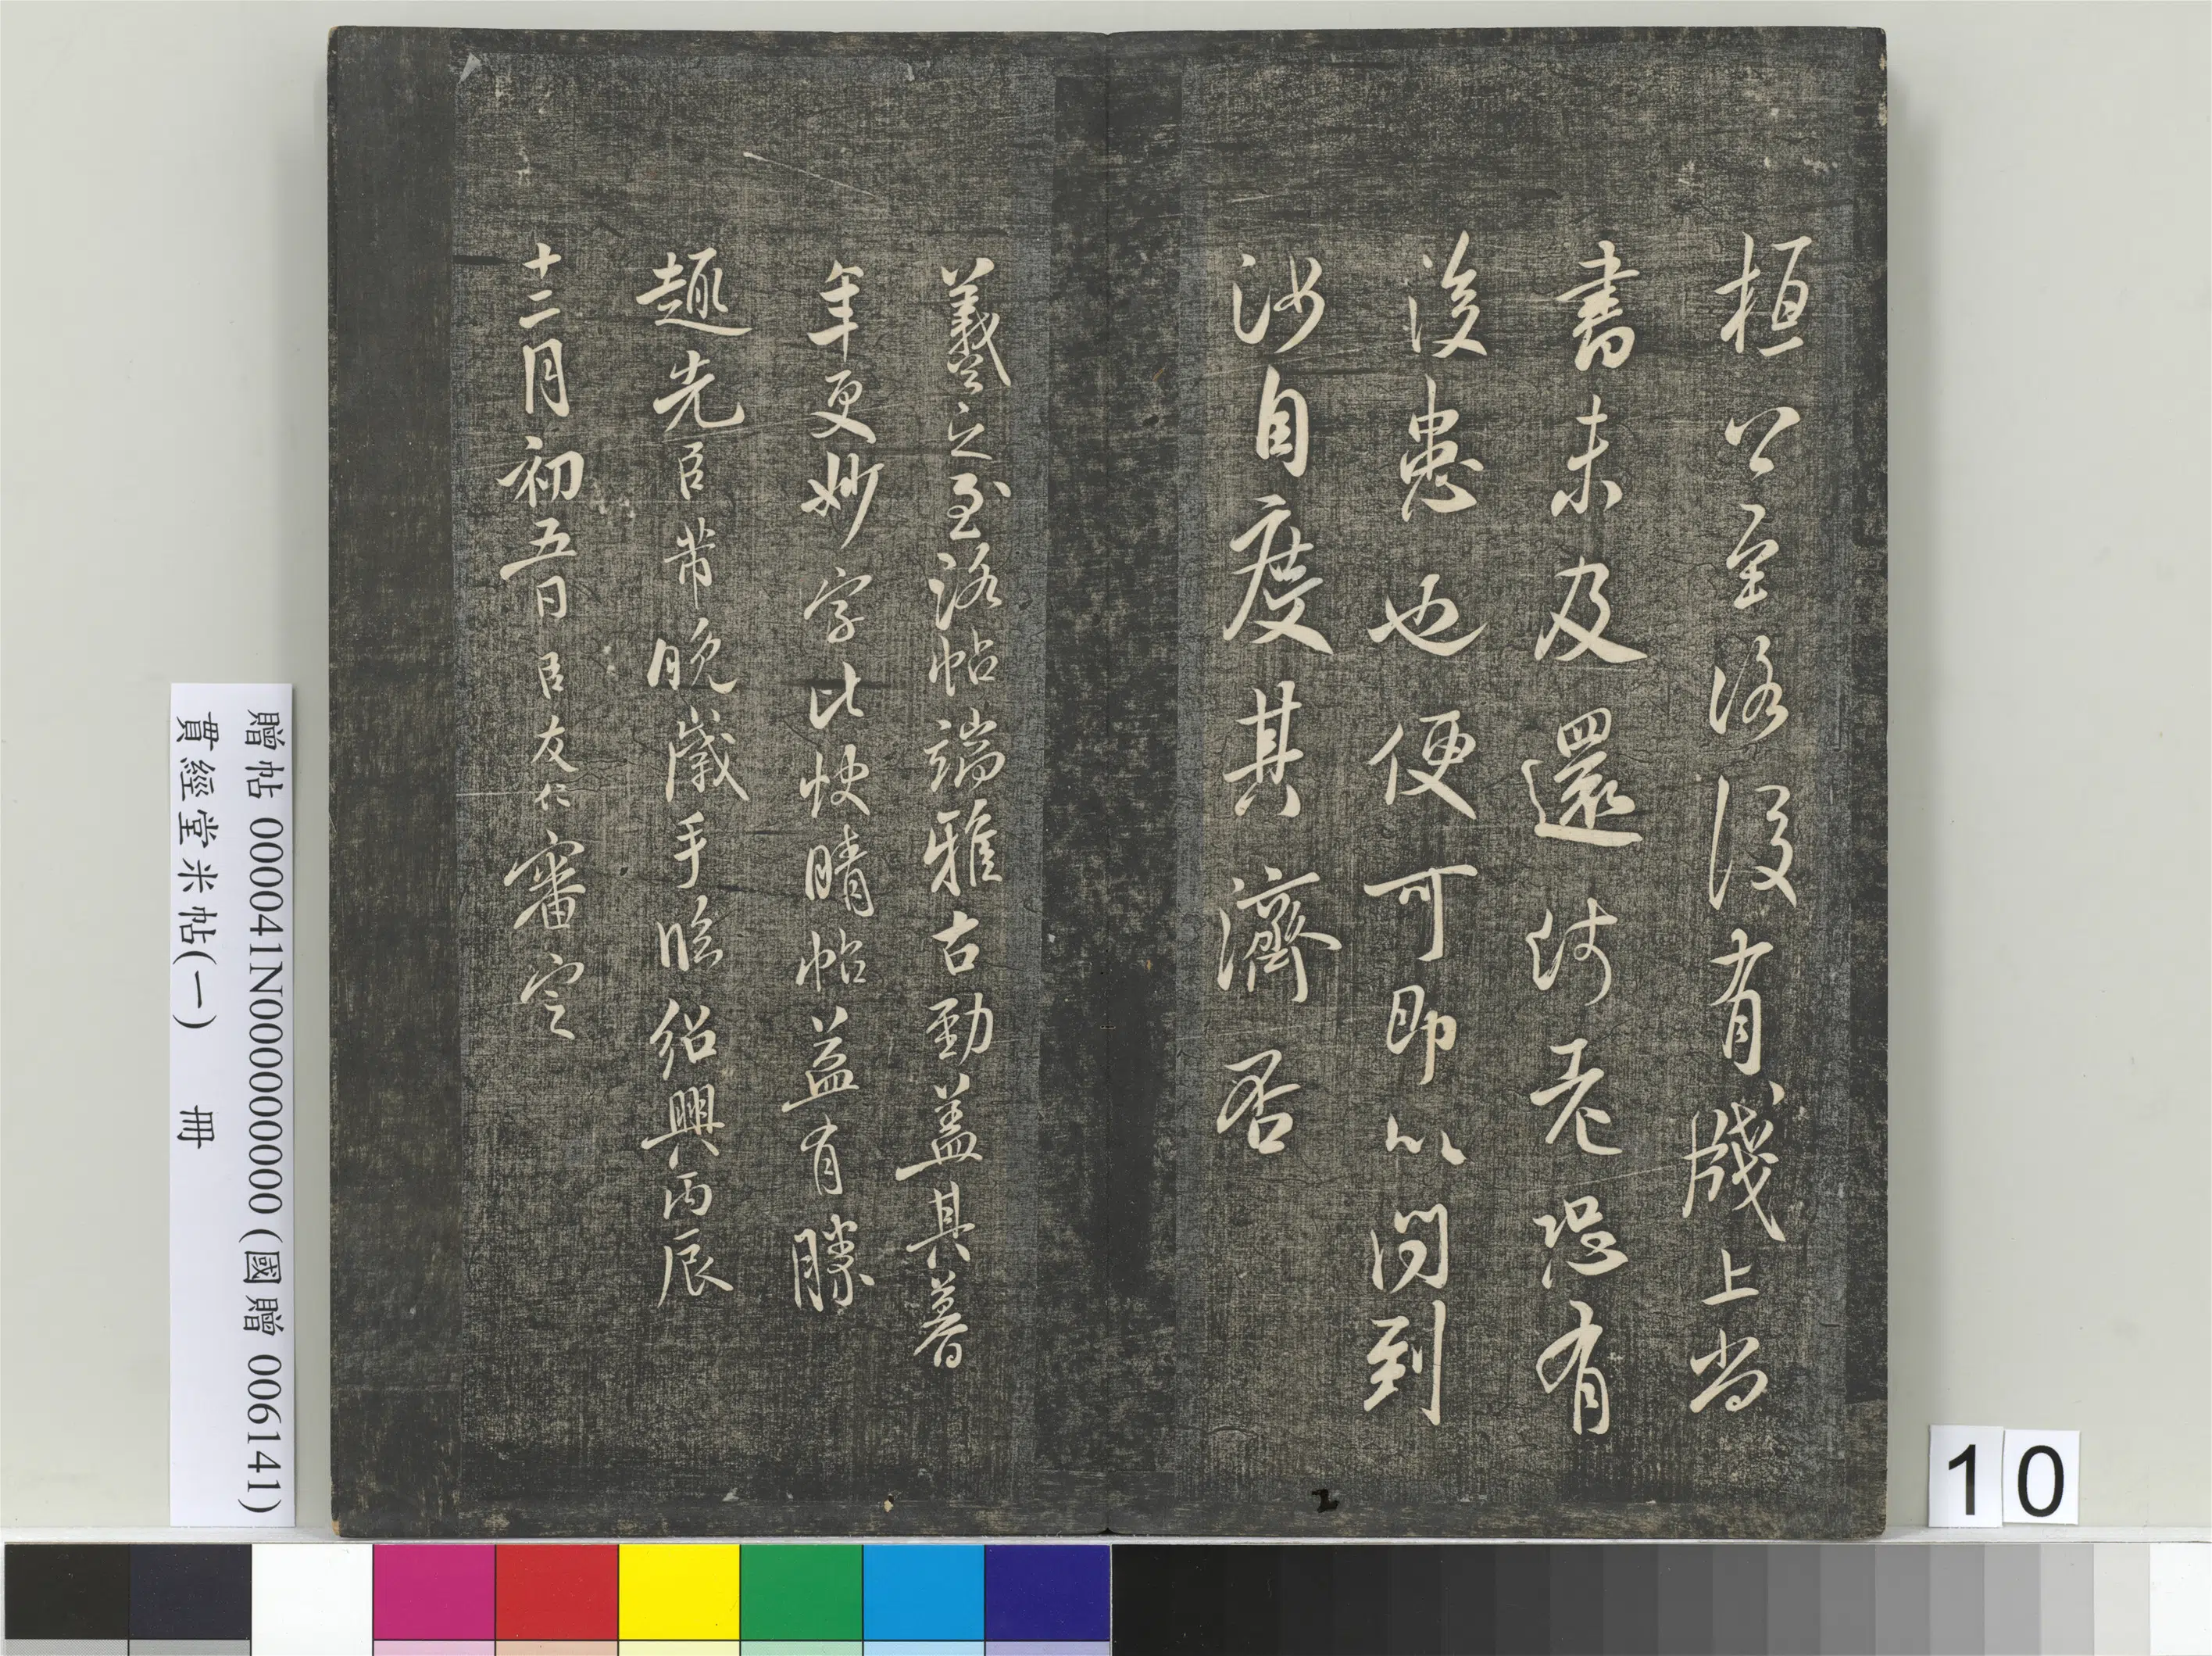 桓公至洛後有牋上尚
書未及還恐有
後患也便可即以問到
汝自度其濟否
羲之至洛帖端雅古勁盖其暮
年更妙字比快晴帖益有勝
趣先臣芾晚歲手臨紹興丙辰
十二月初五日臣友仁審定
贈帖 000041N000000000 (國贈 006141)
貫經堂米帖(一) 冊
10
2